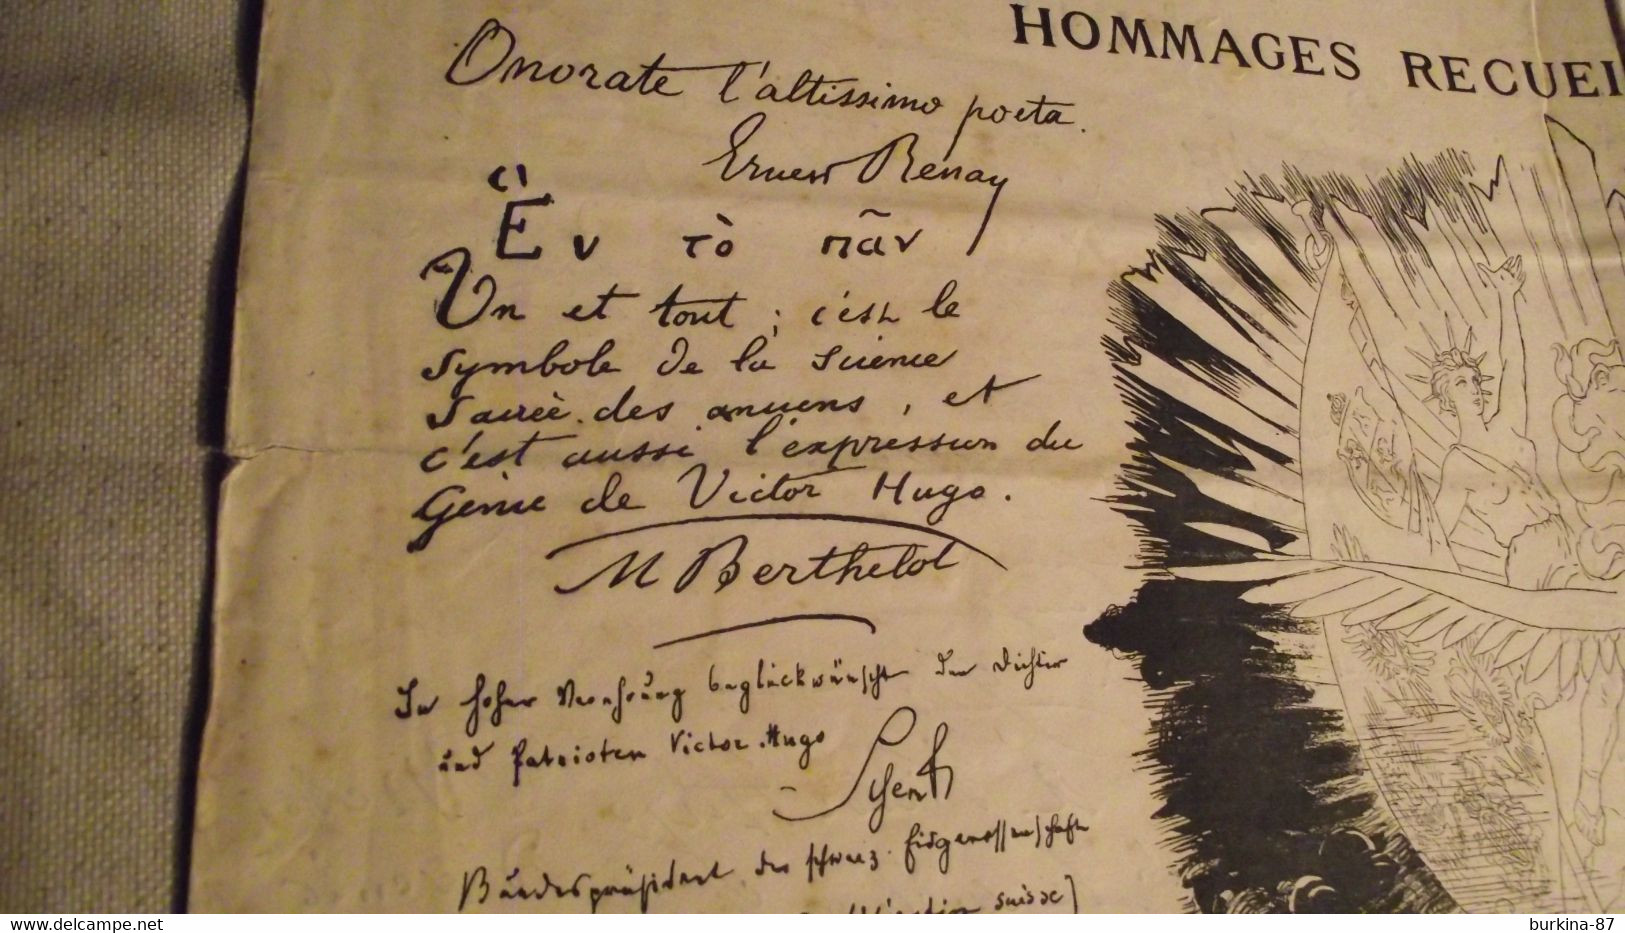 HOMMAGES RECUEI
Onorate l'altissimo poeta.
Ernest Renan
Ἓν τὸ πᾶν
Un et tout ; c'est le
symbole de la science
sacrée des anciens, et
c'est aussi l'expression du
Génie de Victor Hugo.
M Berthelot
In hoher Verehrung beglückwünscht den Dichter
und Patrioten Victor Hugo
Schenk
Bundespräsident der schweiz. Eidgenossenschaft
suisse]
www.delcampe.net
burkina-87